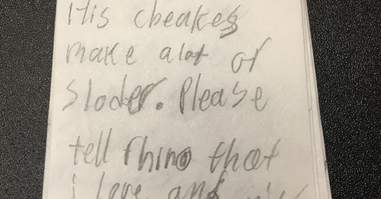 His cheakes
make alot of
Sloder. Please
tell Rhino that
i love and